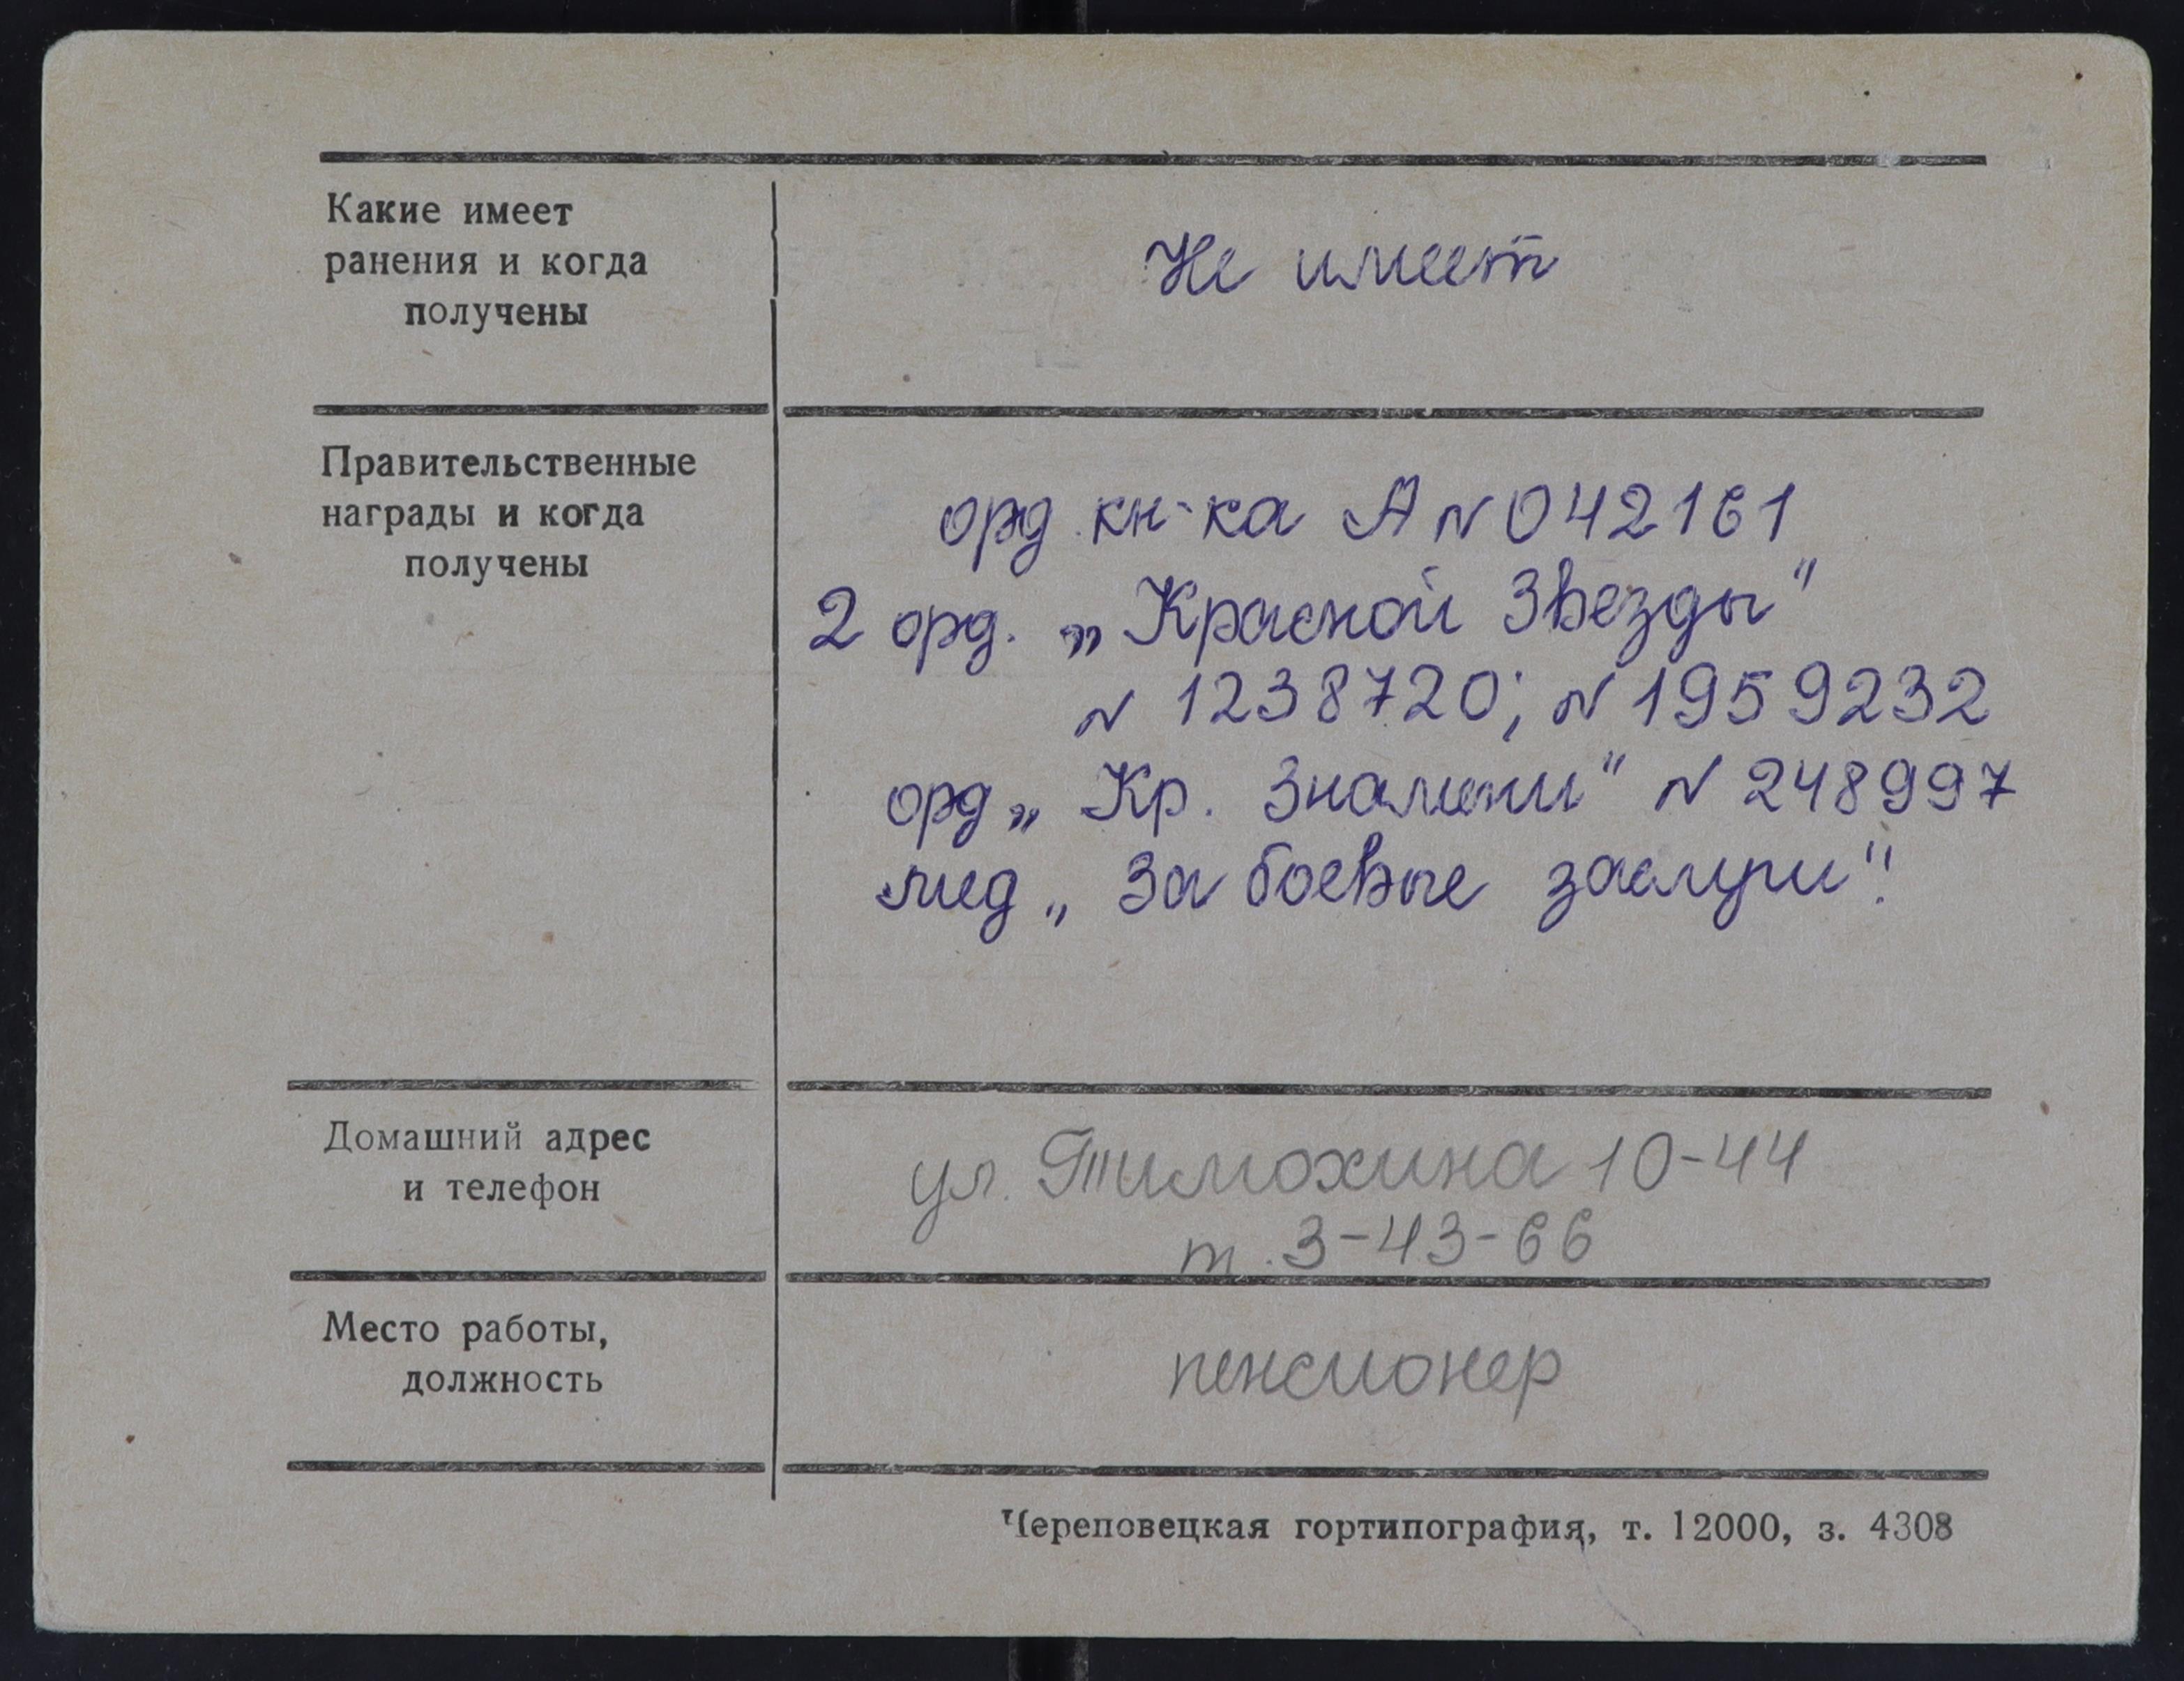 Какие имеет
ранения и когда
получены
Не имеет
Правительственные
награды и когда
получены
орд. кн-ка А N 042161
2 орд. „Красной Звезды"
N 1238720; N 1959232
орд „Кр. Знамени" N 248997
мед „За боевые заслуги".
Домашний адрес
и телефон
ул. Тимохина 10-44
т. 3-43-66
Место работы,
должность
пенсионер
Череповецкая гортипография, т. 12000, з. 4308